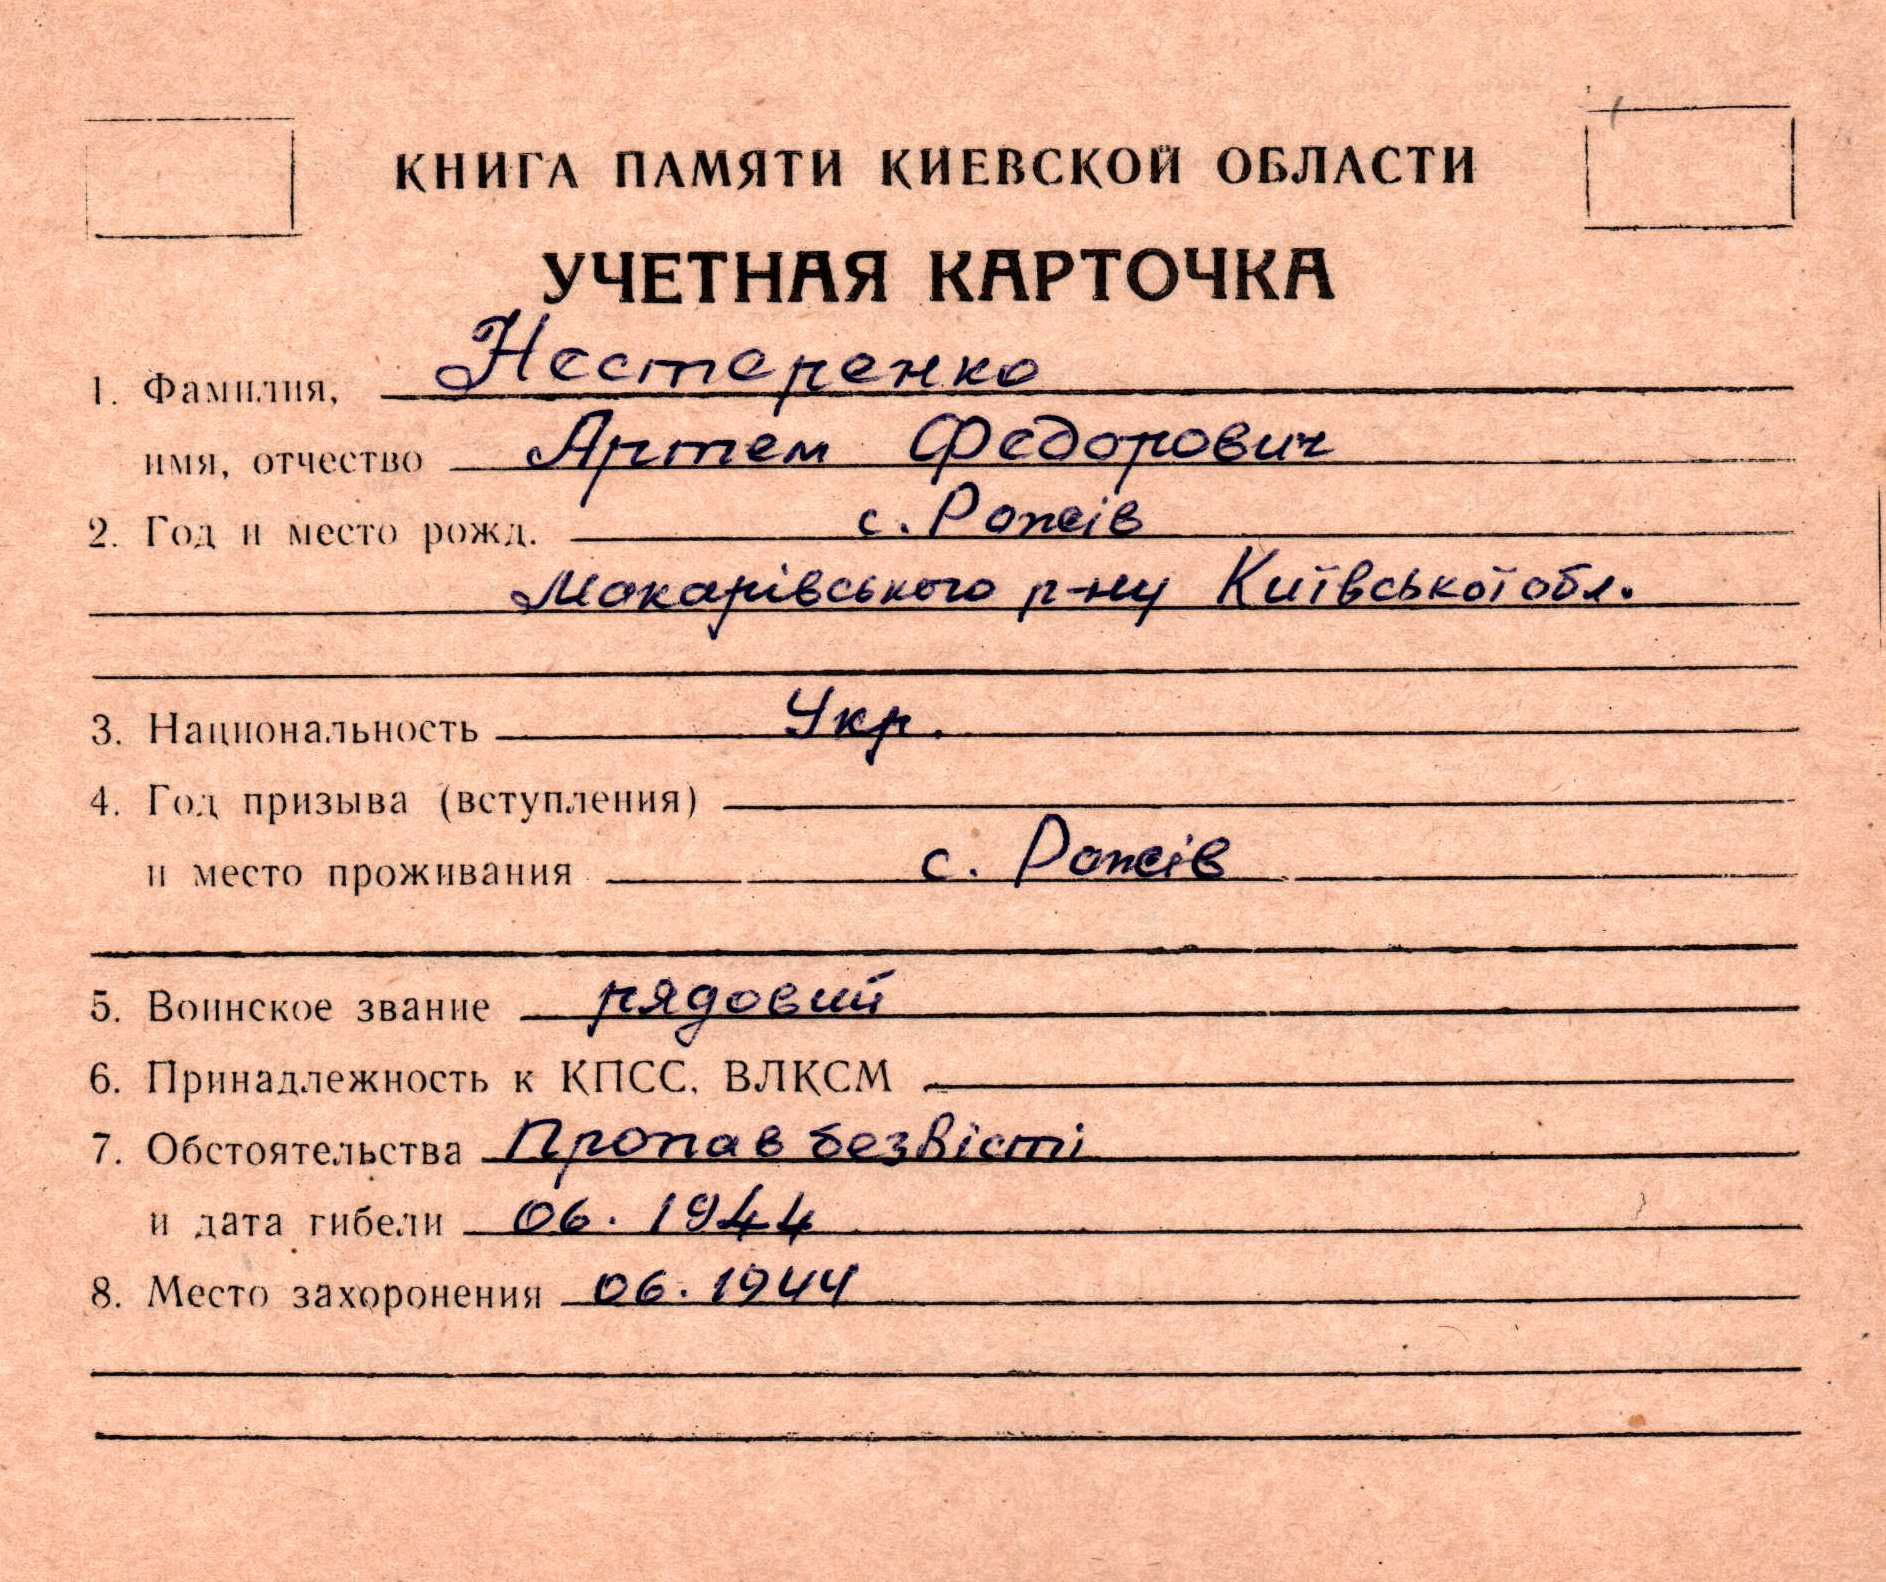 КНИГА ПАМЯТИ КИЕВСКОЙ ОБЛАСТИ
УЧЕТНАЯ КАРТОЧКА
1. Фамилия, Нестеренко
имя, отчество Артем Федорович
2. Год и место рожд. с. Рожів
Макарівського р-ну Київської обл.
3. Национальность Укр.
4. Год призыва (вступления)
и место проживания с. Рожів
5. Воинское звание рядовий
6. Принадлежность к КПСС, ВЛКСМ
7. Обстоятельства Пропав безвісті
и дата гибели 06. 1944
8. Место захоронения 06. 1944